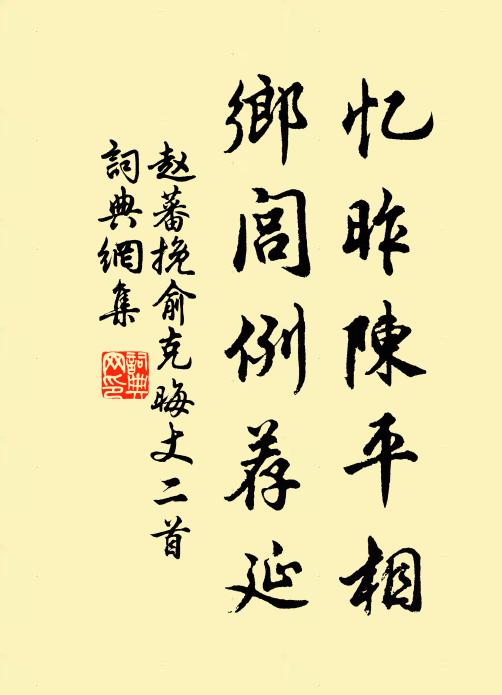 忆昨陳平相
鄉闾例荐延
赵蕃挽俞克晦丈二首
詞典網集
詞典网印